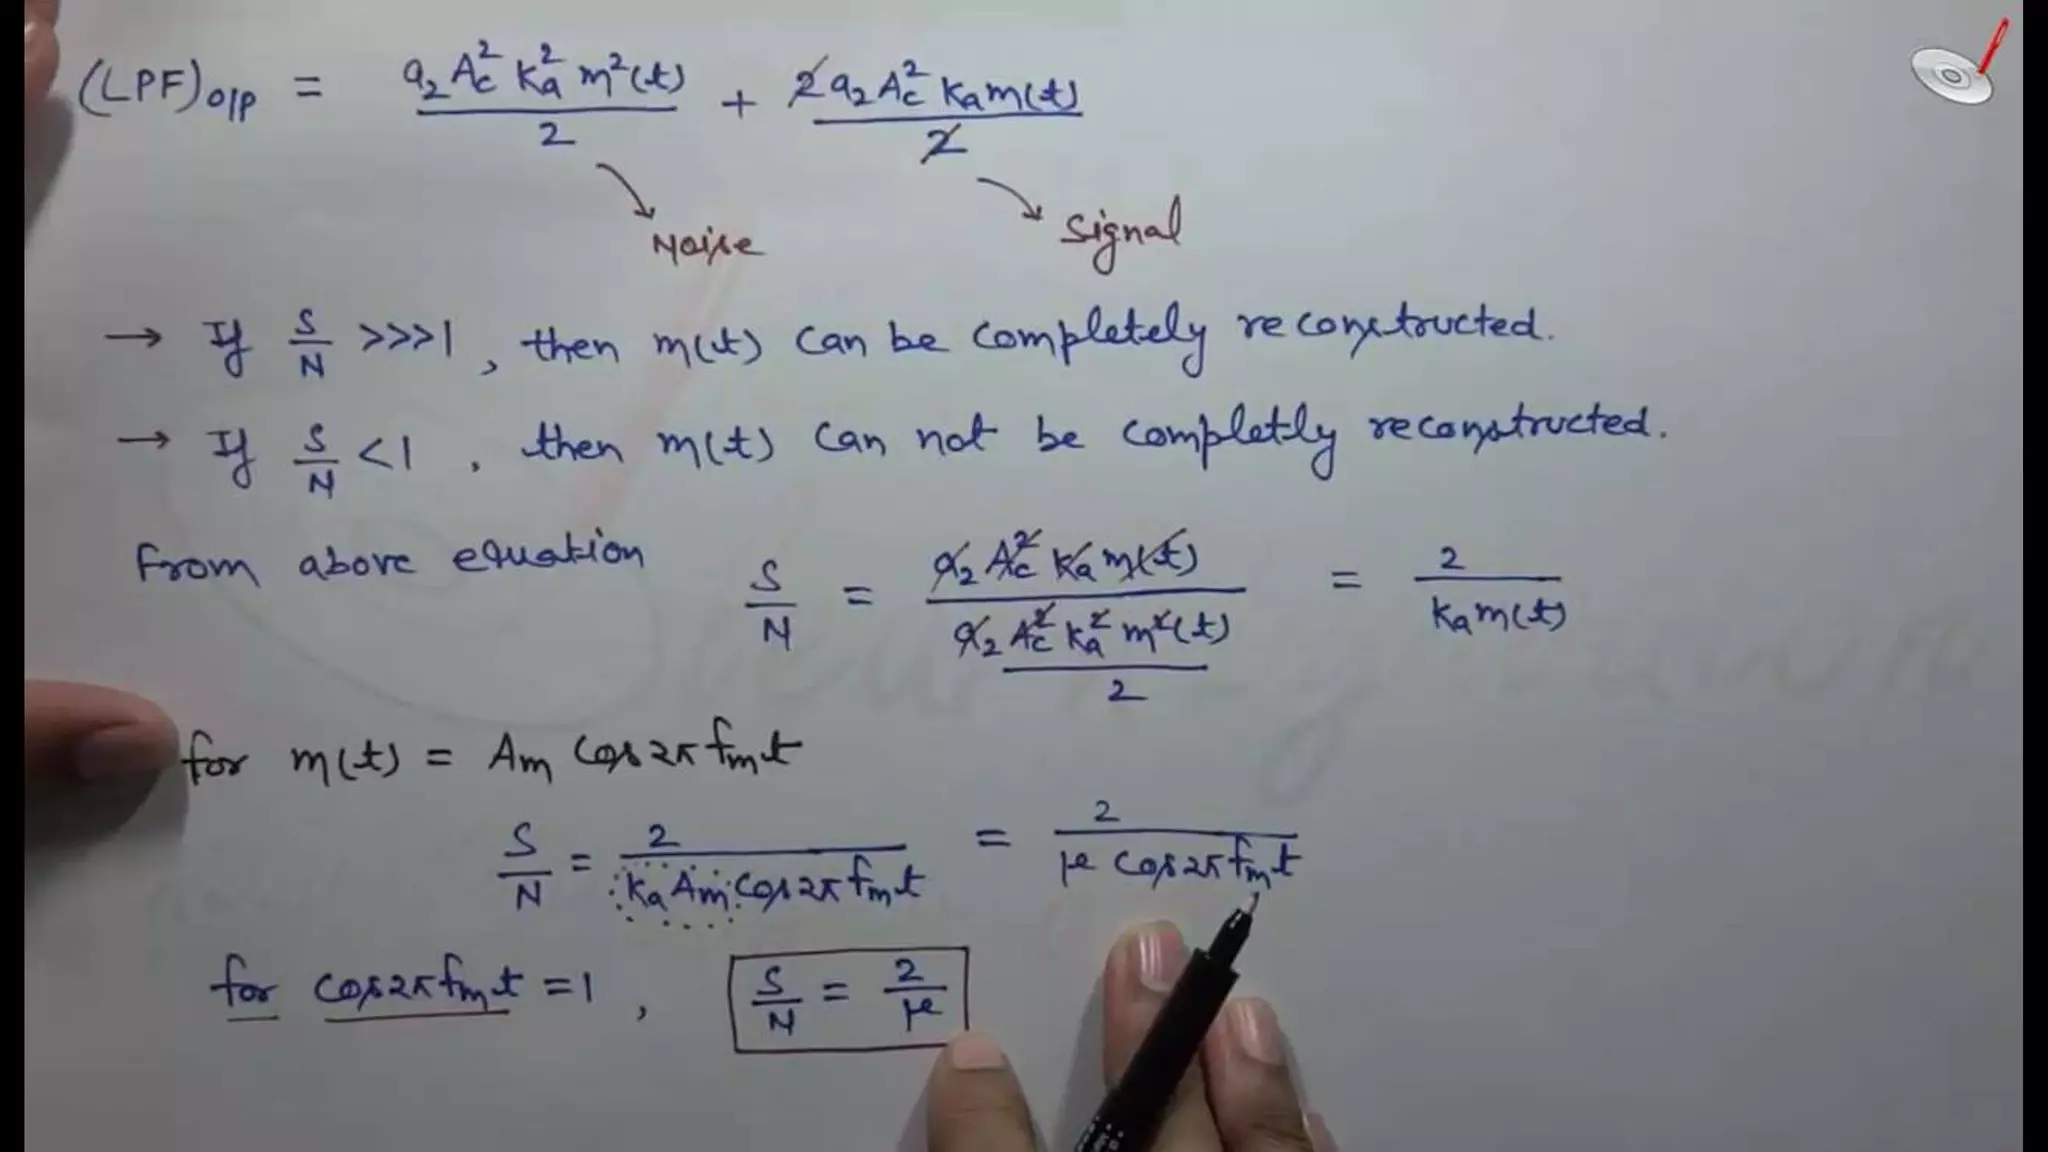 (LPF)o/p = a₂ Ac² Ka² m²(t) / 2 + 2 a₂ Ac² Ka m(t) / 2
Noise Signal
→ If S/N >>>1, then m(t) can be completely reconstructed.
→ If S/N <1, then m(t) can not be completly reconstructed.
From above equation S/N = a₂ Ac² Ka m(t) / (a₂ Ac² Ka² m²(t) / 2) = 2 / Ka m(t)
for m(t) = Am Cos2π fmt
S/N = 2 / Ka Am Cos2π fmt = 2 / μ Cos2π fmt
for cos2π fmt = 1, S/N = 2/μ